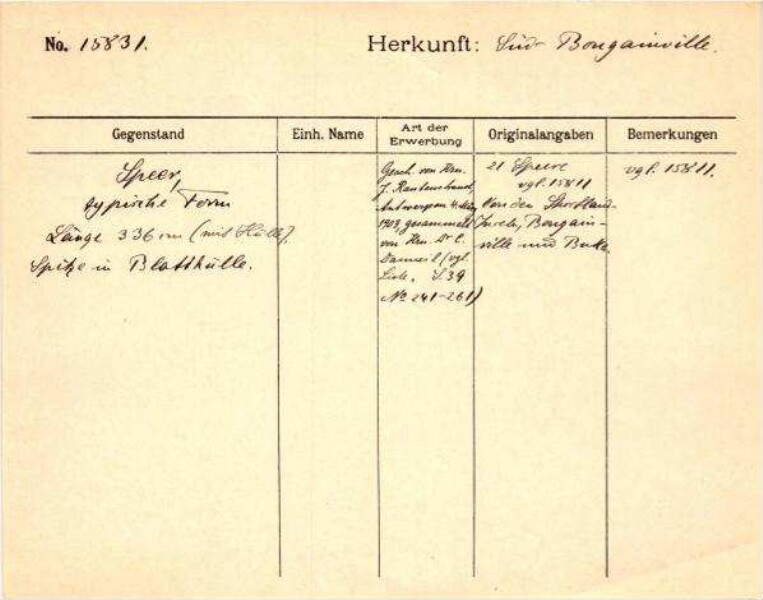 No. 15831.
Herkunft: Süd Bougainville.
Gegenstand
Einh. Name
Art der
Erwerbung
Originalangaben
Bemerkungen
Speer,
typische Form
Länge 336 cm (mit Hülle).
Spitze in Blatthülle.
Gesch. von Hrn.
J. Rautenstrauch,
Antwerpen 4. März
1909, gesammelt
von Hrn. Dr. C.
Danneil (vgl.
Liste, S. 39
No 241-261)
21 Speere
vgl. 15811
Von den Shortland-
Inseln, Bougain-
ville und Buka.
vgl. 15811.